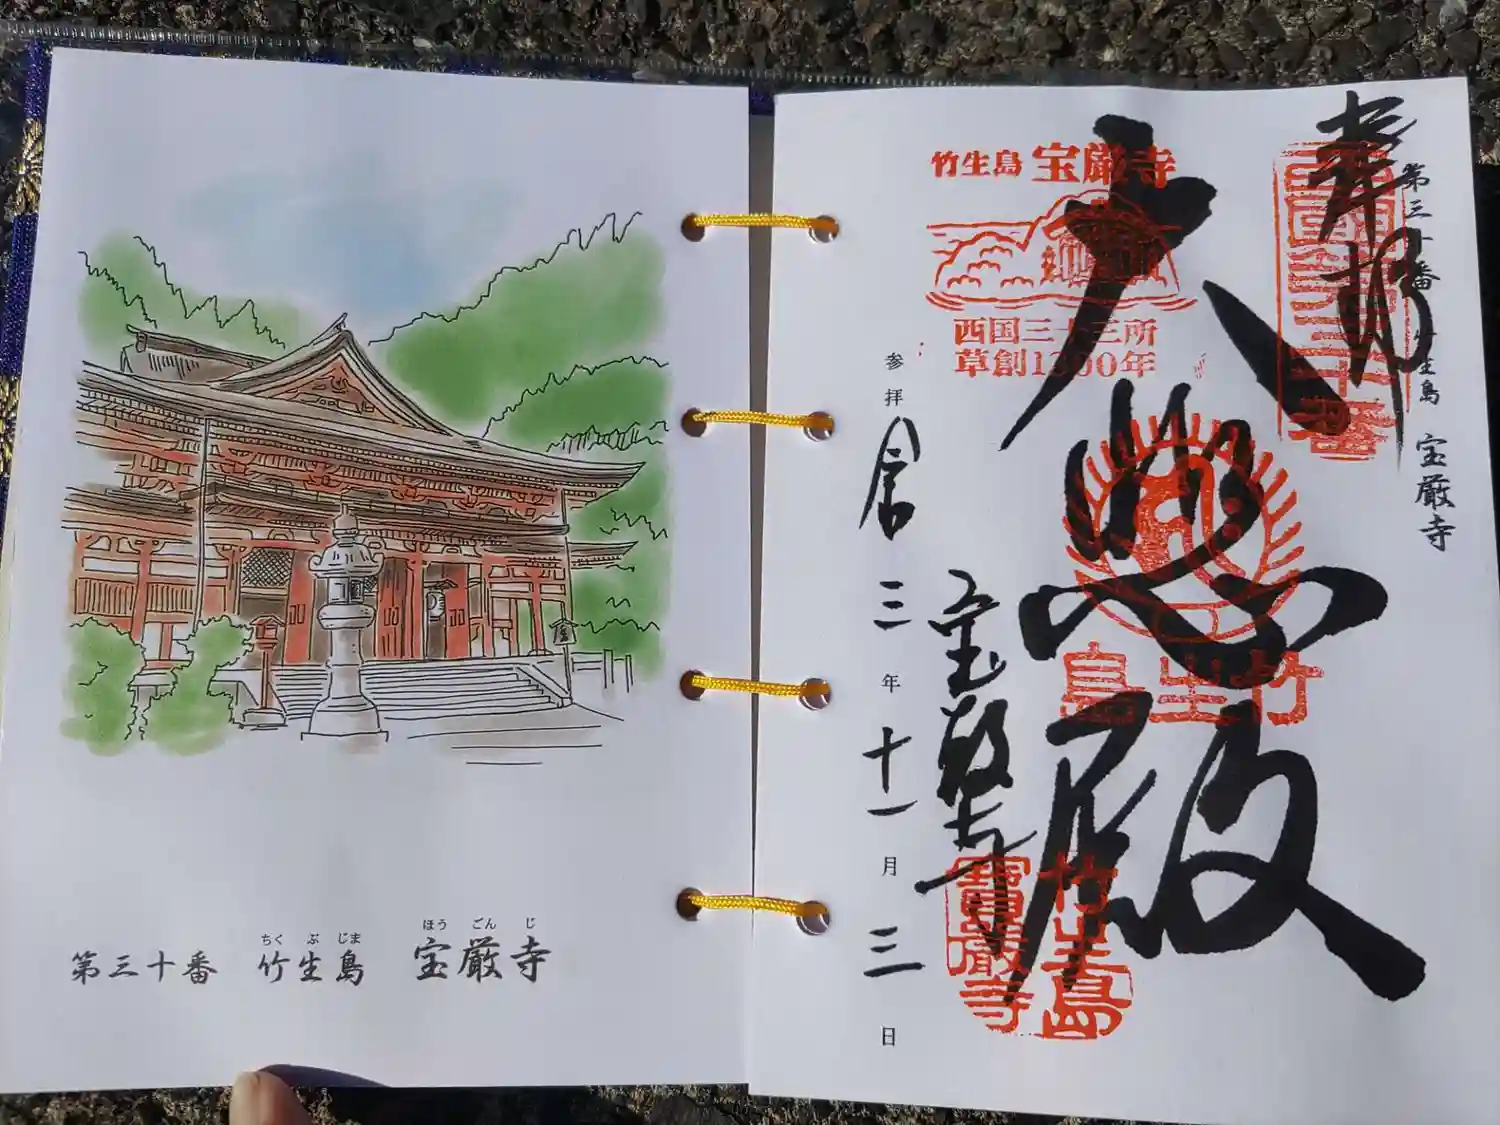 第三十番 竹生島 宝厳寺
ちく ぶ じま ほう ごん じ
第三十番 竹生島 宝厳寺
奉拝
西国第三十番
大悲殿
竹生島 宝厳寺
西国三十三所
草創1300年
竹生島
宝厳寺
竹生島
寶嚴寺
参拝 令和 三 年 十一 月 三 日